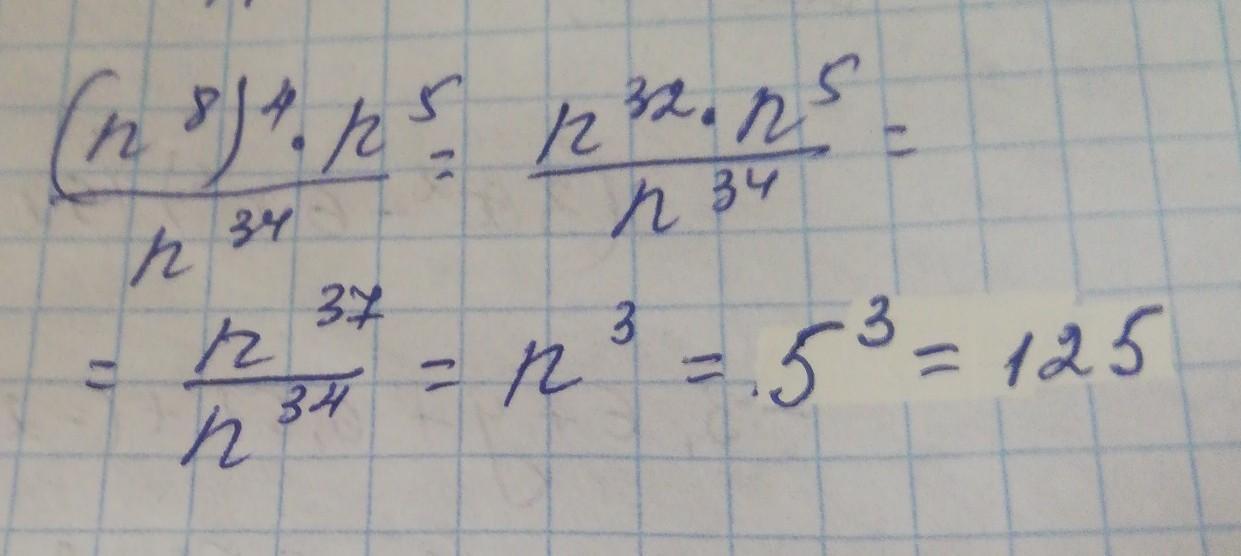 (n^8)^4 · n^5 / n^34 = n^32 · n^5 / n^34 =
= n^37 / n^34 = n^3 = 5^3 = 125